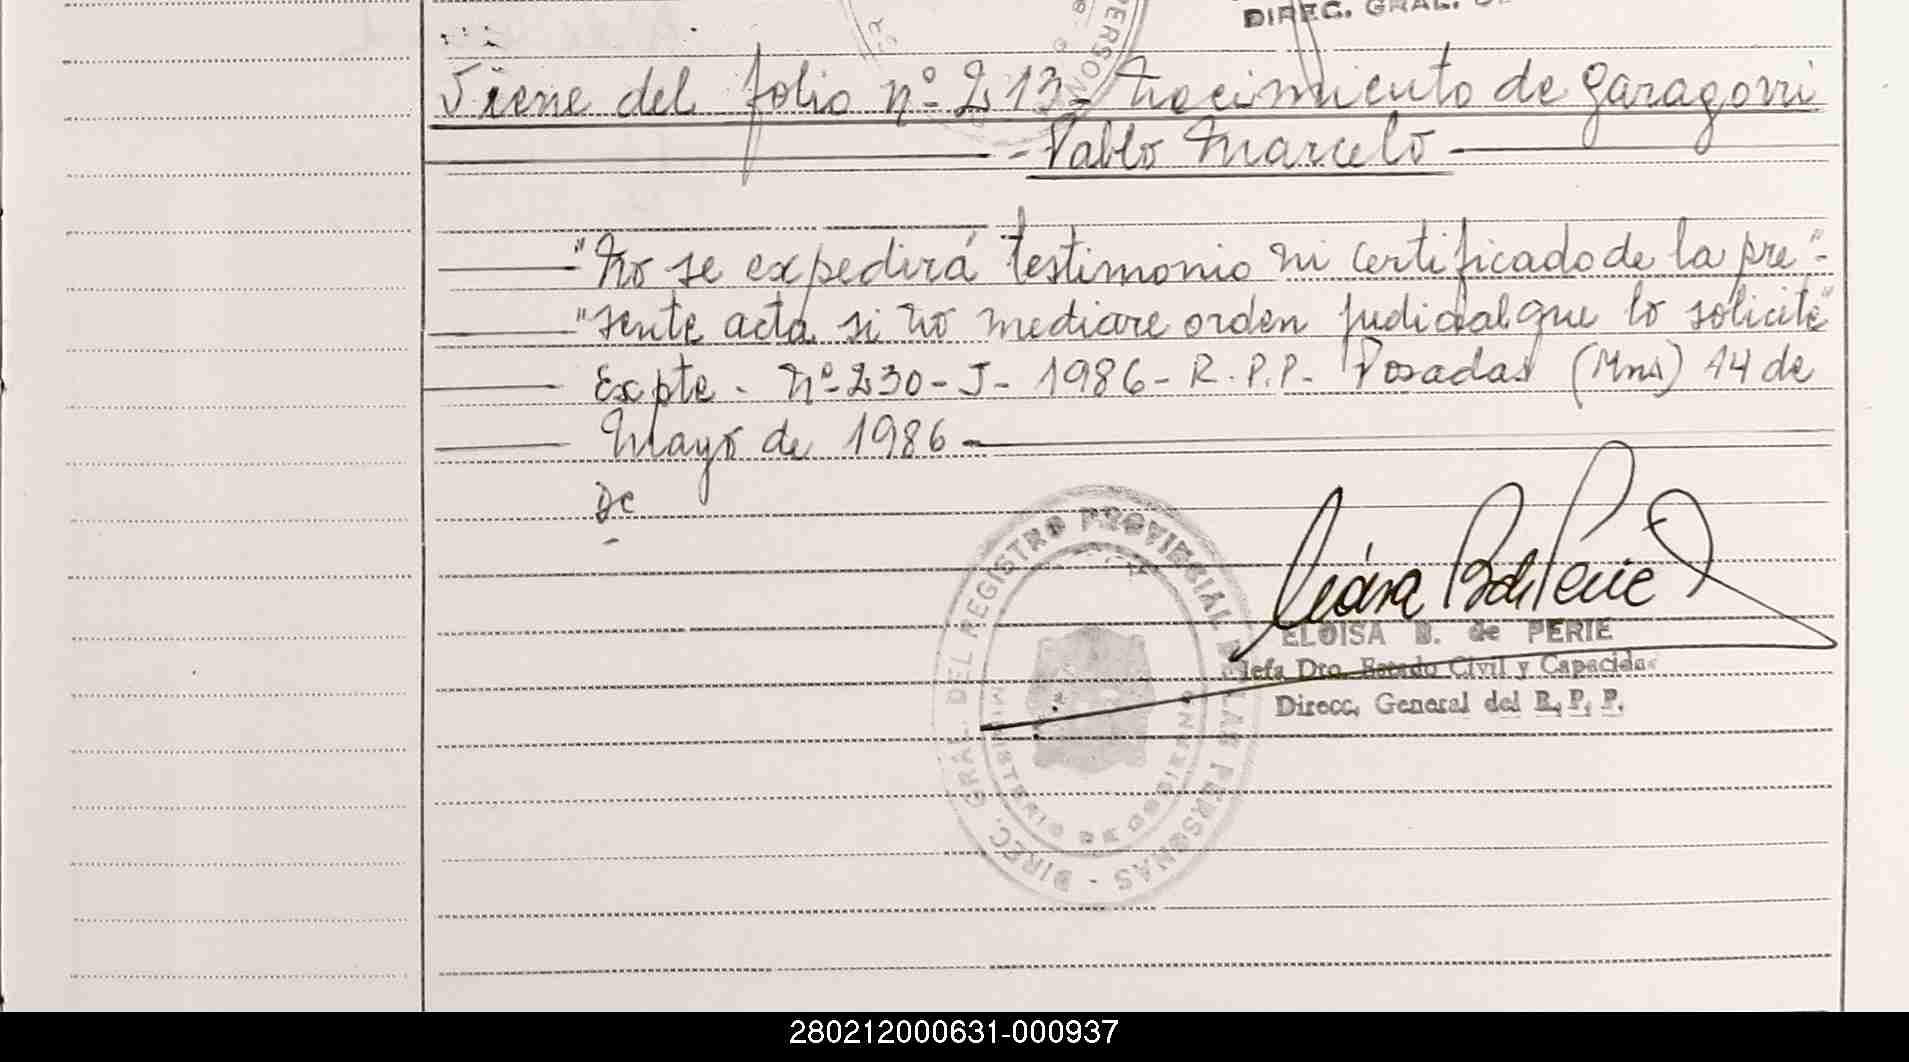 DIREC. GRAL. D
PERSONA
Viene del folio nº 213 - Nacimiento de Garagorri
- Pablo Marcelo
"No se expedirá testimonio ni certificado de la pre"-
"sente acta si no mediare orden judicial que lo solicite"
Expte - Nº 230 - J - 1986 - R.P.P. Posadas (Mns) 14 de
Mayo de 1986 -
DIREC. GRAL. DEL REGISTRO PROVINCIAL DE LAS PERSONAS -
MINISTERIO DE GOBIERNO
ELOISA B. de PERIE
Jefa Dro. Estado Civil y Capacida
Direcc. General del R. P. P.
280212000631-000937